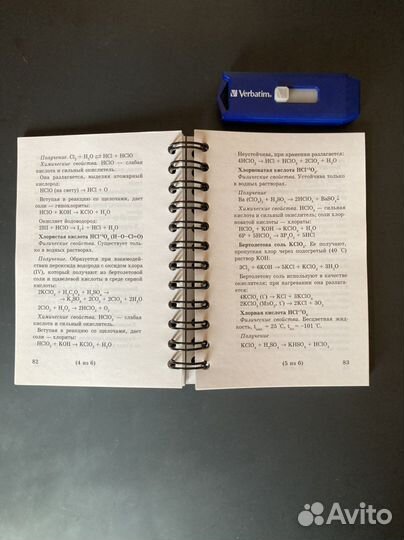 Verbatim
Получение. Cl₂ + H₂O ⇄ HCl + HClO
Химические свойства. HClO — слабая
кислота и сильный окислитель.
Она разлагается, выделяя атомарный
кислород:
HClO (на свету) → HCl + O
Вступая в реакцию со щелочами, дает
соли — гипохлориты:
HClO + KOH → KClO + H₂O
Окисляет йодоводород:
2HI + HClO → I₂↓ + HCl + H₂O
Хлористая кислота HCl⁺³O₂ (H–O–Cl=O)
Физические свойства. Существует толь-
ко в водных растворах.
Получение. Образуется при взаимодей-
ствии пероксида водорода с оксидом хлора
(IV), который получают из бертолетовой
соли и щавелевой кислоты в среде серной
кислоты:
2KClO₃ + H₂C₂O₄ + H₂SO₄ →
→ K₂SO₄ + 2CO₂ + 2ClO₂ + 2H₂O
2ClO₂ + H₂O₂ → 2HClO₂ + O₂
Химические свойства. HClO₂ — слабая
кислота и сильный окислитель.
Вступая в реакцию со щелочами, дает
соли — хлориты:
HClO₂ + KOH → KClO₂ + H₂O
82 (4 из 6)
Неустойчива, при хранении разлагается:
4HClO₂ → HCl + HClO₃ + 2ClO₂ + H₂O
Хлорноватая кислота HCl⁺⁵O₃
Физические свойства. Устойчива только
в водных растворах.
Получение
Ba (ClO₃)₂ + H₂SO₄ → 2HClO₃ + BaSO₄↓
Химические свойства. HClO₃ — сильная
кислота и сильный окислитель; соли хлор-
новатой кислоты — хлораты:
HClO₃ + KOH → KClO₃ + H₂O
6P + 5HClO₃ → 3P₂O₅ + 5HCl
Бертолетова соль KClO₃. Ее получают,
пропуская хлор через подогретый (40 °C)
раствор KOH:
3Cl₂ + 6KOH → 5KCl + KClO₃ + 3H₂O
Бертолетову соль используют в качестве
окислителя; при нагревании она разлагается:
4KClO₃ (t°) → KCl + 3KClO₄
2KClO₃ (MnO₂, t°) → 2KCl + 3O₂
Хлорная кислота HCl⁺⁷O₄
Физические свойства. Бесцветная жид-
кость, = 25 °C, = –101 °C.
Получение
KClO₄ + H₂SO₄ → KHSO₄ + HClO₄
(5 из 6) 83
Avito